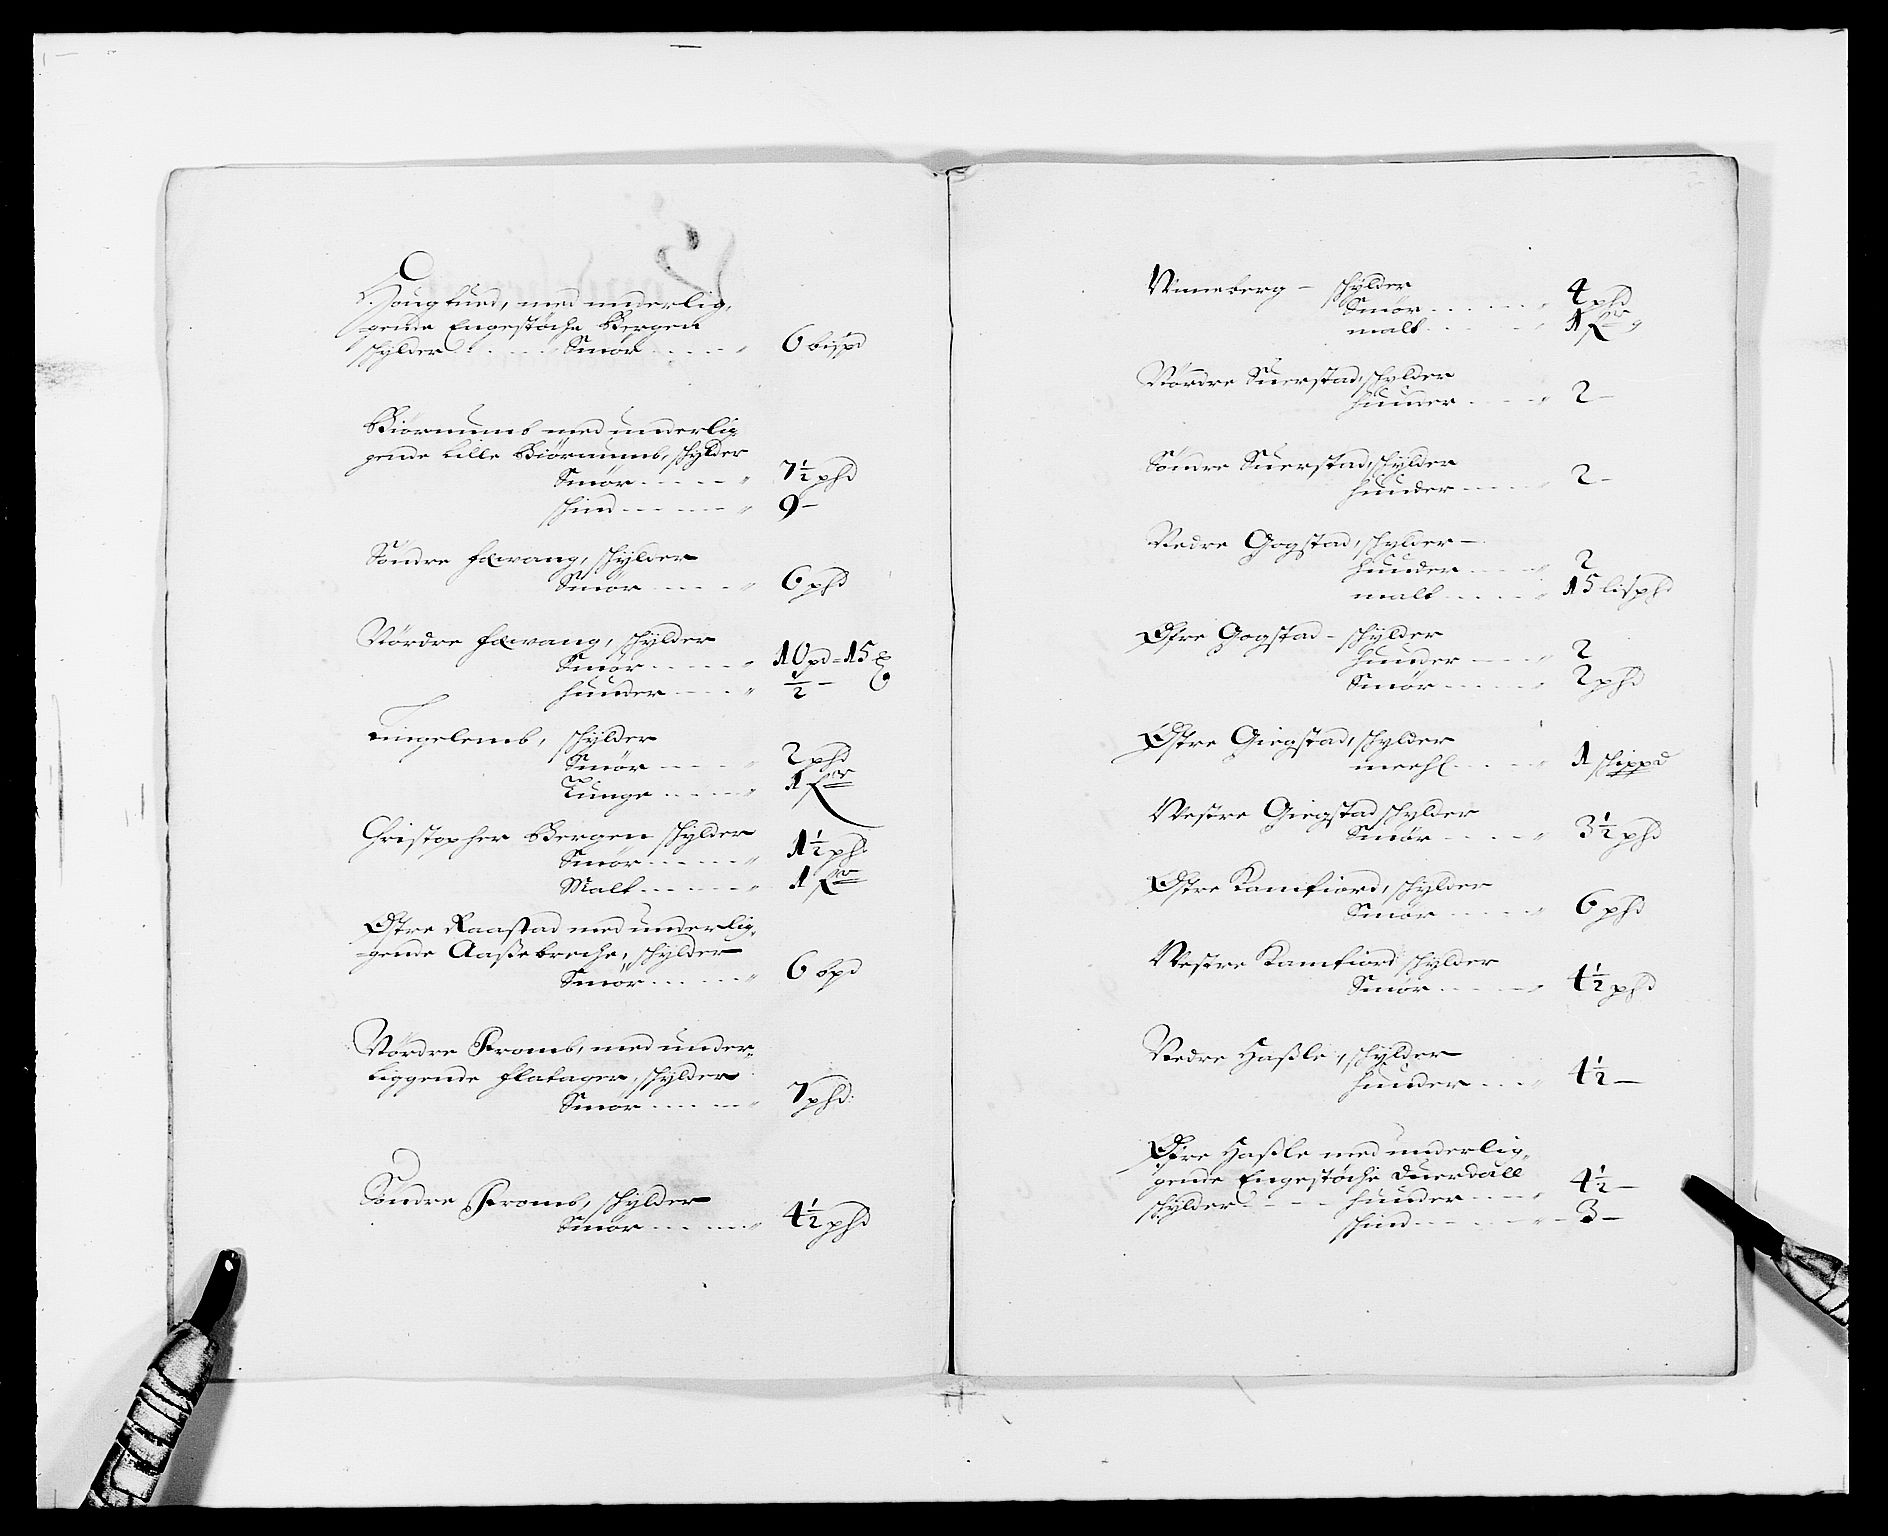 Hougtued, med underlig,
gende Engestøche Bergen
schylder . . . . Smør . . . . 6 bispd
Biørnumb med underlig
gende Lille Biørnumb, schylder
Smør . . . . 7½ phd
schind . . . . 9 –
Søndre fæwang, schylder
Smør . . . . 6 phd
Nørdre fæwang, schylder
Smør . . . . 10 pd = 15 
huuder . . . . ½ –
Lingelemb, schylder
Smør . . . . 2 phd
Tunge . . . . 1
Christopher Bergen schylder
Smør . . . . 1½ phd
Malt . . . . 1
Østre Raastad med underlig,
gende Aassebreche, schylder
Smør . . . . 6 bpd
Nørdre Fromb, med under,
liggende flatager, schylder
Smør . . . . 7 phd:
Søndre Fromb, schylder
Smør . . . . 4½ phd
Vinneberg – schylder
Smør . . . . 4 phd
malt . . . . 1
Nørdre Suerstad, schylder
huuder . . . . 2 –
Søndre Suerstad, schylder
huuder . . . . 2 –
Nedre Gogstad, schylder –
huuder . . . . 2
malt . . . . 15 lisphd
Øfre Gogstad – schylder
huuder . . . . 2
Smør . . . . 2 phd
Østre Giegstad, schylder
meehl . . . . 1 schippd
Vestre Giegstad schylder
Smør . . . . 3½ phd
Østre Kamfiord, schylder
Smør . . . . 6 phd
Vestre Kamfiord schylder
Smør . . . . 4½ phd
Nedre Hassle, schylder
huuder . . . 4½ –
Øfre Hassle med underlig,
gende Engestøche Duerdall
schylder – – – huuder . . . . 4½ –
schind . . . . 3 –